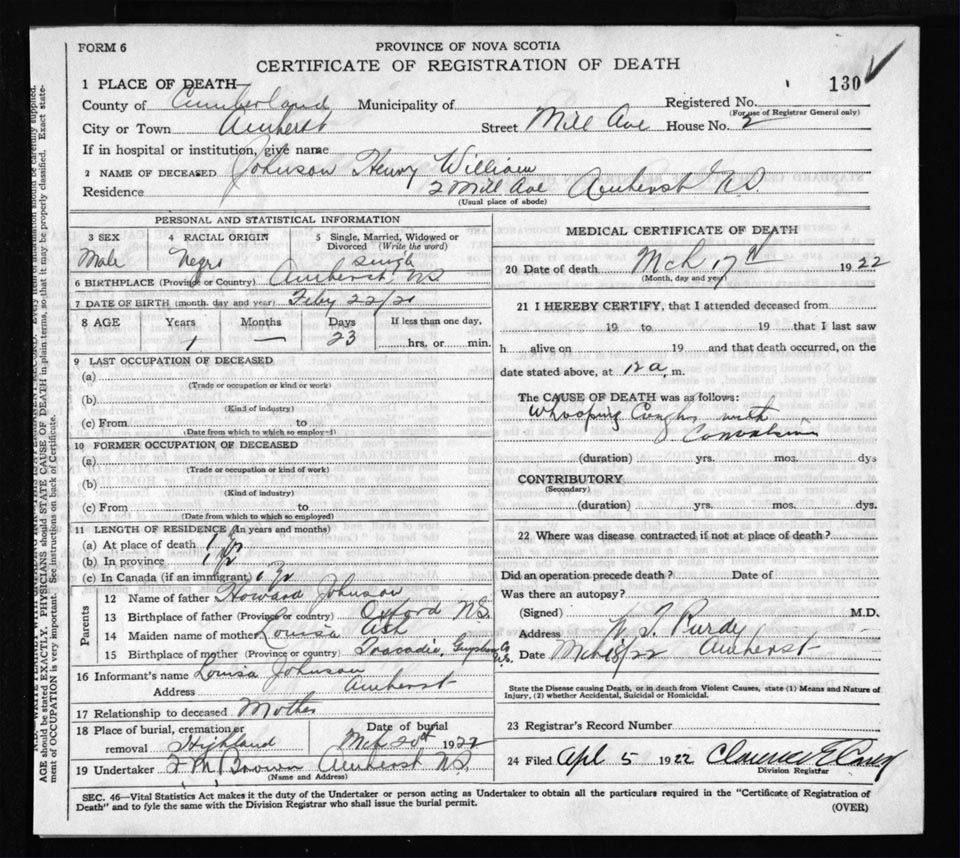 FORM 6
PROVINCE OF NOVA SCOTIA
CERTIFICATE OF REGISTRATION OF DEATH
130
1 PLACE OF DEATH
County of Cumberland Municipality of Registered No.
(For use of Registrar General only)
City or Town Amherst Street Mill Ave House No. 2
If in hospital or institution, give name
2 NAME OF DECEASED Johnson Henry William
Residence 2 Mill Ave Amherst N.S.
(Usual place of abode)
PERSONAL AND STATISTICAL INFORMATION
3 SEX 4 RACIAL ORIGIN 5 Single, Married, Widowed or Divorced (Write the word)
Male Negro Single
6 BIRTHPLACE (Province or Country) Amherst, NS
7 DATE OF BIRTH (month, day and year) Feby 22/21
8 AGE Years Months Days If less than one day,
1 — 23 hrs. or min.
9 LAST OCCUPATION OF DECEASED
(a)
(Trade or occupation or kind or work)
(b)
(Kind of industry)
(c) From to
(Date from which to which so employed)
10 FORMER OCCUPATION OF DECEASED
(a)
(Trade or occupation or kind of work)
(b)
(Kind of industry)
(c) From to
(Date from which to which so employed)
11 LENGTH OF RESIDENCE (In years and months)
(a) At place of death
(b) In province
(c) In Canada (if an immigrant)
Parents
12 Name of father Howard Johnson
13 Birthplace of father (Province or country) Oxford N.S.
14 Maiden name of mother Louisa Ash
15 Birthplace of mother (Province or country) Tracadie,
16 Informant's name Louisa Johnson
Address Amherst
17 Relationship to deceased Mother
18 Place of burial, cremation or removal Highland Date of burial Mch 20th 1922
19 Undertaker F M Brown Amherst N.S.
(Name and Address)
MEDICAL CERTIFICATE OF DEATH
20 Date of death Mch 17th 1922
(Month, day and year)
21 I HEREBY CERTIFY, that I attended deceased from
19 to 19 that I last saw
h alive on 19 and that death occurred, on the
date stated above, at 12 a. m.
The CAUSE OF DEATH was as follows:
Whooping Cough with
Convulsions
(duration) yrs. mos. dys
CONTRIBUTORY
(Secondary)
(duration) yrs. mos. dys.
22 Where was disease contracted if not at place of death?
Did an operation precede death? Date of
Was there an autopsy?
(Signed) Purdy M.D.
Address Amherst
Date Mch 18/22
State the Disease causing Death, or in death from Violent Causes, state (1) Means and Nature of
Injury, (2) whether Accidental, Suicidal or Homicidal.
23 Registrar's Record Number
24 Filed Apl 5 1922 Clarence E
Division Registrar
SEC. 46—Vital Statistics Act makes it the duty of the Undertaker or person acting as Undertaker to obtain all the particulars required in the "Certificate of Registration of
Death" and to fyle the same with the Division Registrar who shall issue the burial permit.
(OVER)
AGE should be stated EXACTLY. PHYSICIANS should STATE CAUSE OF DEATH in plain terms, so that it may be properly classified. Exact state-
ment of OCCUPATION is very important. See instructions on back of Certificate.